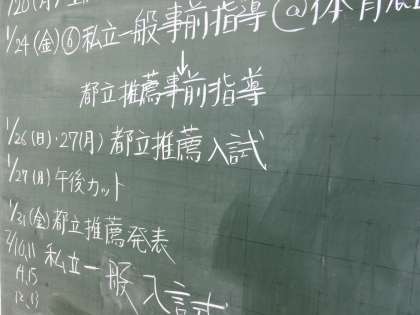 1/24(金)⑥私立一般事前指導@体育
↓
都立推薦事前指導
1/26(日)・27(月)都立推薦入試
1/27(月)午後カット
1/31(金)都立推薦発表
2/10,11 私立一般入試
14,15
12,13